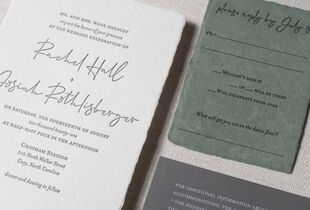 MR. AND MRS. WADE SMEDLEY
request the honor of your presence
AT THE WEDDING CELEBRATION OF
Rachel Hall
+
Josiah Rothlisberger
ON SATURDAY, THE FOURTEENTH OF AUGUST
two thousand twenty-one
AT HALF-PAST FOUR IN THE AFTERNOON
CHATHAM STATION
110 North Walker Street
Cary, North Carolina
Dinner and dancing to follow
please reply by July
WOULDN'T MISS IT
or WILL BE THERE
WILL CELEBRATE FROM AFAR
What will get you out on the dance floor?
FOR ADDITIONAL INFORMATION ABOUT